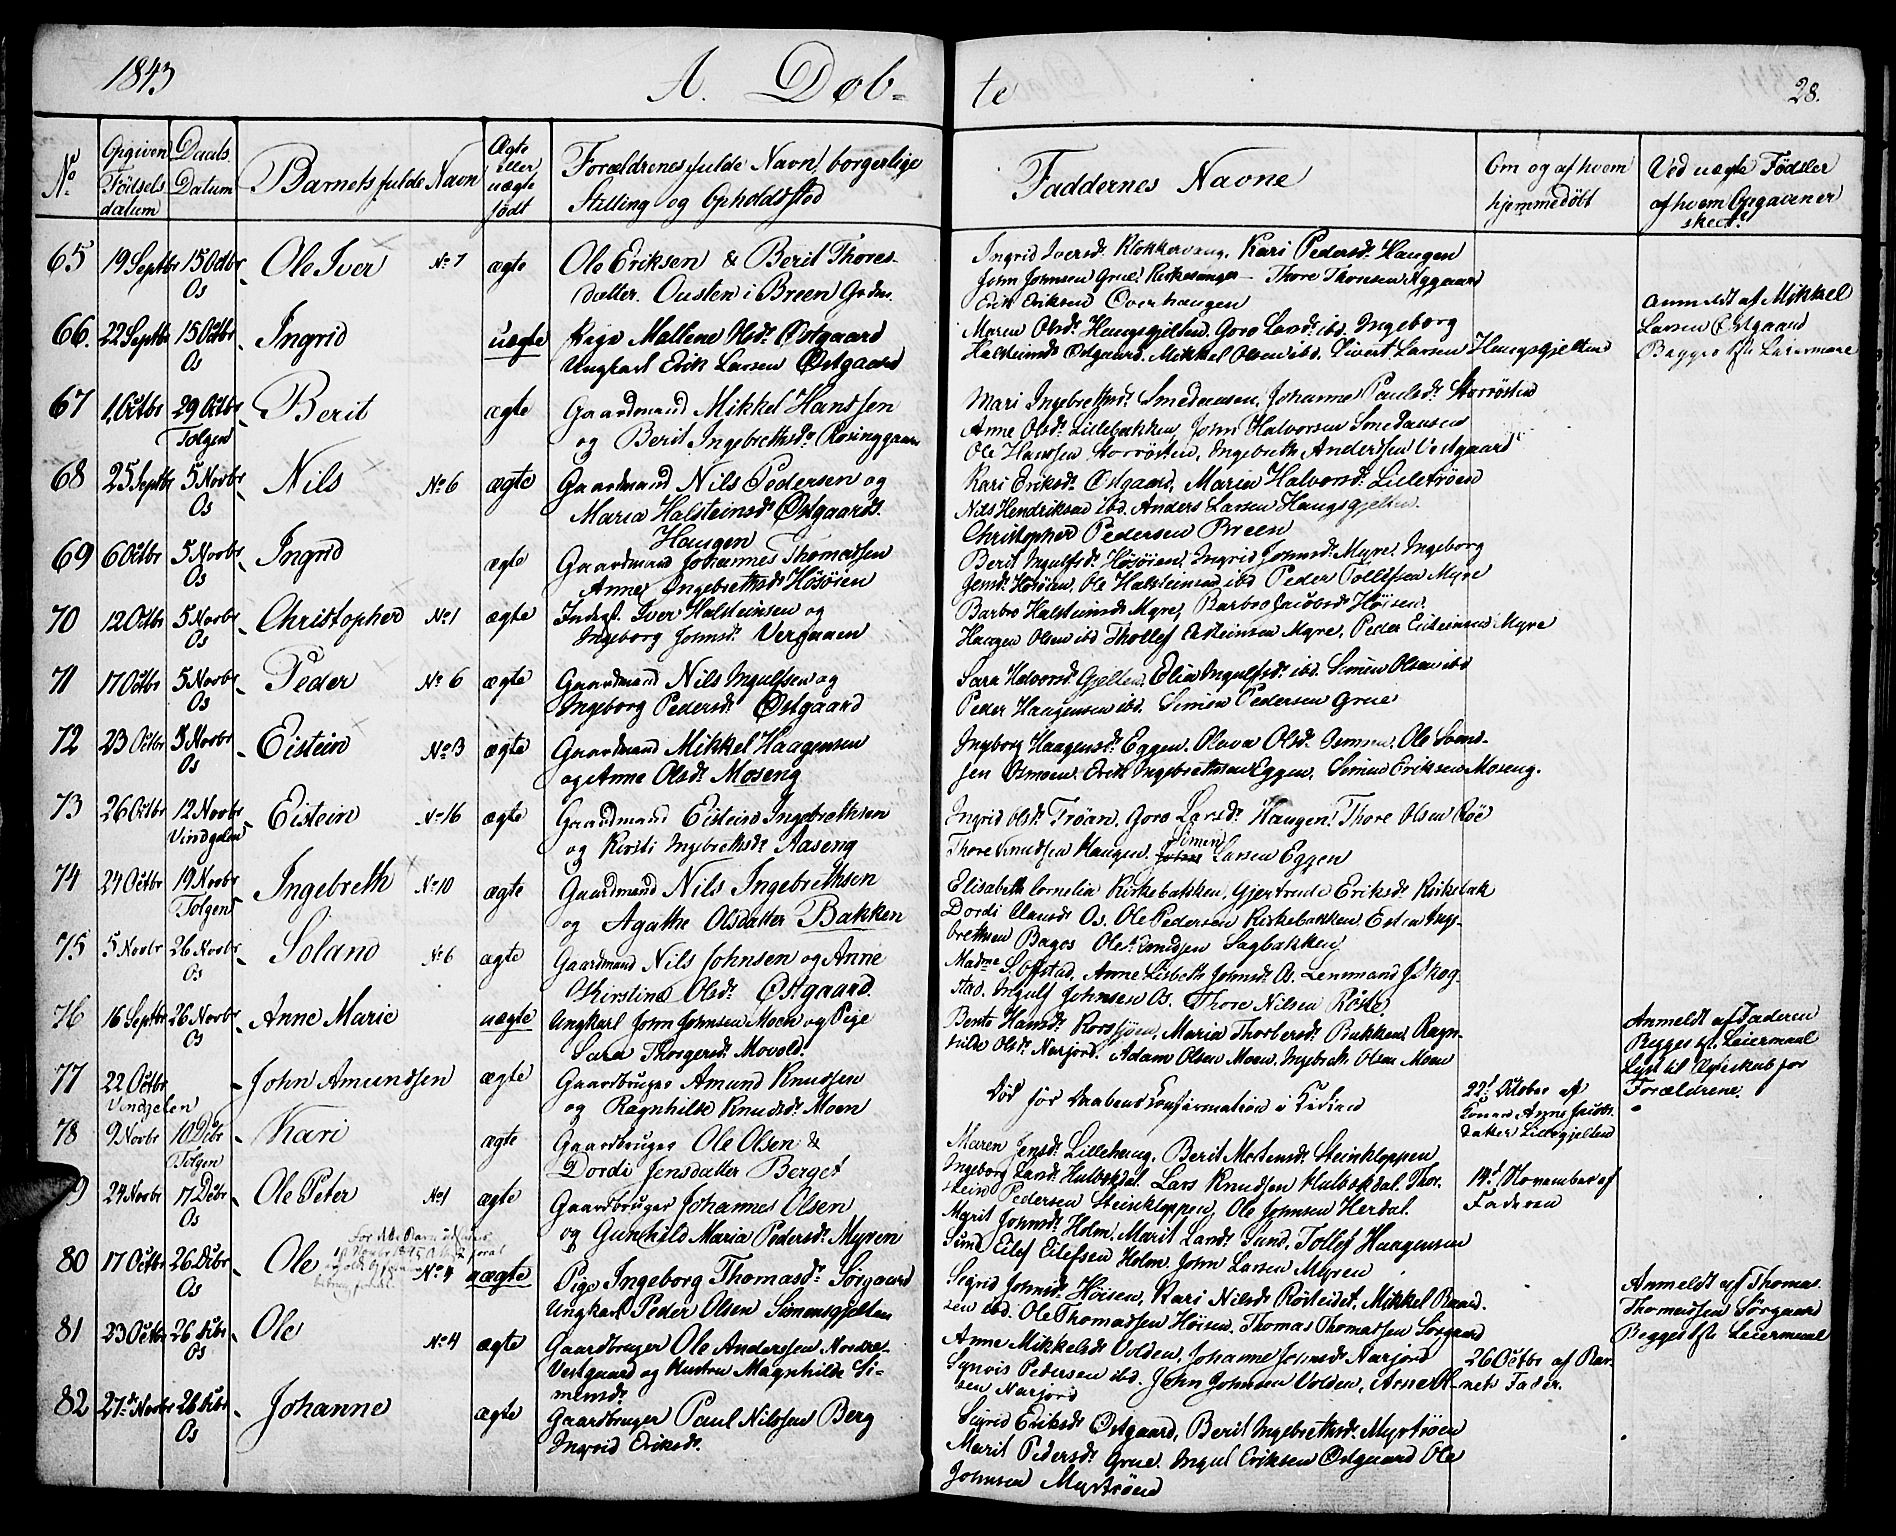 1843
A. Døb-
te
28.
No
Opgiven Fødsels datum
Daabs Datum
Barnets fulde Navn
Ægte eller uægte født
Forældrenes fulde Navn, borgerlige
Stilling og Opholdssted
Faddernes Navne
Om og af hvem
hjemmedøbt
Ved uægte Fødsler
af hvem Opgaven er
skeet.
65 19 Septbr 15 Octbr Os Ole Iver No 7 ægte
Ole Eriksen & Berit Thores-
datter. Ousten i Breen
Ingrid Iversdr Klokkervang, Kari Pedersdr Haugen
John Johnsen Grue, Kirkesanger - Thore Thoresen Nygaard
Erik Eriksen Overhaugen
66. 22 Septbr 15 Octbr Os Ingrid uægte
Pige Malene Olsdr Østgaard
Ungkarl Erik Larsen Østgaard
Maren Olsdr Haugsgjelten, Goro Larsdr ibd. Ingeborg
Halsteinsdr Østgaard. Mikkel Olsen ibd. Sivert Larsen Haugsgjelten
Anmeldt af Mikkel
Larsen Østgaard
Begges 1ste Leiermaal
67 1 Octbr 29 Octbr Tolgen Berit ægte
Gaardmand Mikkel Hanssen
og Berit Ingebrethsdr Rosinggaard
Mari Ingebrethsdr Smedaasen, Johannes Paulsdr Storrøsten
Anne Olsdr Lillebakken, John Halvorsen Smedaasen
Ole Hanssen Storrøsten, Ingebreth Anderssen Vestgaard
68 25 Septbr 5 Novbr Os Nils No 6 ægte
Gaardmand Nils Pedersen og
Maria Halsteinsdr Østgaard.
Kari Eriksdr Østgaard, Maria Halvorsdr Lilletrøen
Nils Hendriksen ibd. Anders Larsen Haugsgjelten.
Christopher Pedersen Breen
69 6 Octbr 5 Novbr Os Ingrid ægte
Haugen
Gaardmand Johannes Thomassen
Anne Ingebrethsdr Høsøien
Berit Ingulfsdr Høsøien, Ingrid Johnsdr Myre, Ingeborg
Jensdr Høsøien, Ole Halsteinsen ibd Peder Tollefsen Myre
70 12 Octbr 5 Novbr Os Christopher No 1 ægte
Inderst Iver Halsteinsen og
Ingeborg Johnsdr Vergaaen
Barbro Halsteinsdr Myre, Barbro Jacobsdr Høisen,
Haagen Olsen ibd Thollef Eisteinsen Myre, Peder Eisteinsen Myre
71 17 Octbr 5 Novbr Os Peder No 6 ægte
Gaardmand Nils Ingulfsen og
Ingeborg Pedersdr Østgaard
Sara Halvorsdr Gjelten, Elia Ingulfsdr ibd. Simen Olsen ibd
Peder Haagensen ibd. Simen Pedersen Grue
72 23 Octbr 5 Novbr Os Eistein No 3 ægte
Gaardmand Mikkel Haagensen
og Anne Olsdr Moseng
Ingborg Haagensdr Eggen. Olava Olsdr Osmoen. Ole Simen-
sen Osmoen. Erik Ingebrethsen Eggen, Simen Eriksen Moseng.
73 26 Octbr 12 Novbr Vindgelen Eistein No 16 ægte
Gaardmand Eistein Ingebrethsen
og Kirsti Ingebrethsdr Aaseng
Ingrid Olsdr Trøan, Goro Larsdr Haugen, Thore Olsen Røe
Simen
Thore Knudsen Haugen. John Larsen Eggen
74 24 Octbr 19 Novbr Tolgen Ingebreth No 10 ægte
Gaardmand Nils Ingebrethsen
og Agathe Olsdatter Bakken
Elisabeth Cornelia Kirkebakken, Gjertrude Eriksdr Kirkebak
Dordi Clausdr Os. Ole Pedersen Kirkebakken, Esten Inge-
brethsen Bages Ole Knudsen Sagbakken
75 5 Novbr 26 Novbr Os Soland No 6 ægte
Gaardmand Nils Johnsen og Anne
Kirstine Olsdr Østgaard.
Madme Soffstad, Anne Lisbeth Johnsdr Os. Lensmand J. Skog-
stad. Ingulf Johnsen Os. Thore Nilsen Røste.
76 16 Septbr 26 Novbr Os Anne Marie uægte
Ungkarl John Johnsen Moen og Pige
Sara Thorgersdr Movold.
Bente Hansdr Koossjøen, Maria Thorbersdr Bakken, Ragn-
hilde Olsdr Narjord. Adam Olsen Moen, Ingebreth Olsen Moen
Anmeldt af Faderen
Begges 1st. Leiermaal
Lyst til Ægteskab for
Forældrene.
77 22 Octbr Vindgelen John Amundsen ægte
Gaardbruger Amund Knudsen
og Ragnhilde Knudsdr Moen
Død før Daabens Confirmation i Kirken
22d October af
Konen Anne Jacobs-
datter Lillegjelten
78 9 Novbr 10 Decbr Tolgen Kari ægte
Gaardbruger Ole Olsen &
Dordi Jensdatter Berget
Maren Jensdr Lillehaug, Berit Mortensdr Steinkloppen
Ingeborg Larsdr Hulbækdal. Lars Knudsen Hulbækdal. Thor-
stein Pedersen Steinkloppen, Ole Johnsen Herdal.
14d November af
Faderen
79 24 Novbr 17 Decbr Os Ole Peter No 1 ægte
Gaardbruger Johannes Olsen
og Gunhild Maria Pedersdr Myren
Marit Johnsdr Holm, Marit Larsdr Sund, Tollef Haagensen
Sund Eilef Eilefsen Holm. John Larsen Myren
80 17 Octbr 26 Decbr Os Ole No 4 uægte
Pige Ingeborg Thomasdr Sørgaard
Ungkarl Peder Olsen Simensgjelten
Sigrid Johnsdr Høisen, Kari Nilsdr Røsteidet, Mikkel Baard-
sen ibd. Ole Thomassen Høisen, Thomas Thomassen Sørgaard
Anmeldt af Thomas
Thomassen Sørgaard
Begges 1ste Leiermaal
81 23 Octbr 26 Decbr Os Ole No 4 ægte
Gaardbruger Ole Anderssen Nordre-
Vestgaard og Hustru Magnhilde Si-
mensdr
Anne Mikkelsdr Volden, Johanne Johnsdr Narjord
Synvis Pedersen ibd. John Johnsen Volden, Arne Ol-
sen Narjord
26 Octbr af Bar-
nets Fader.
82 27de Novbr 26 Decbr Os Johanne ægte
Gaardbruger Paul Nilssen Berg
Ingrid Eriksdr.
Sigrid Eriksdr Østgaard, Berit Ingebrethsdr Myrtrøen
Marit Pedersdr Grue, Ingul Eriksen Østgaard Ole
Johnsen Myrtrøen